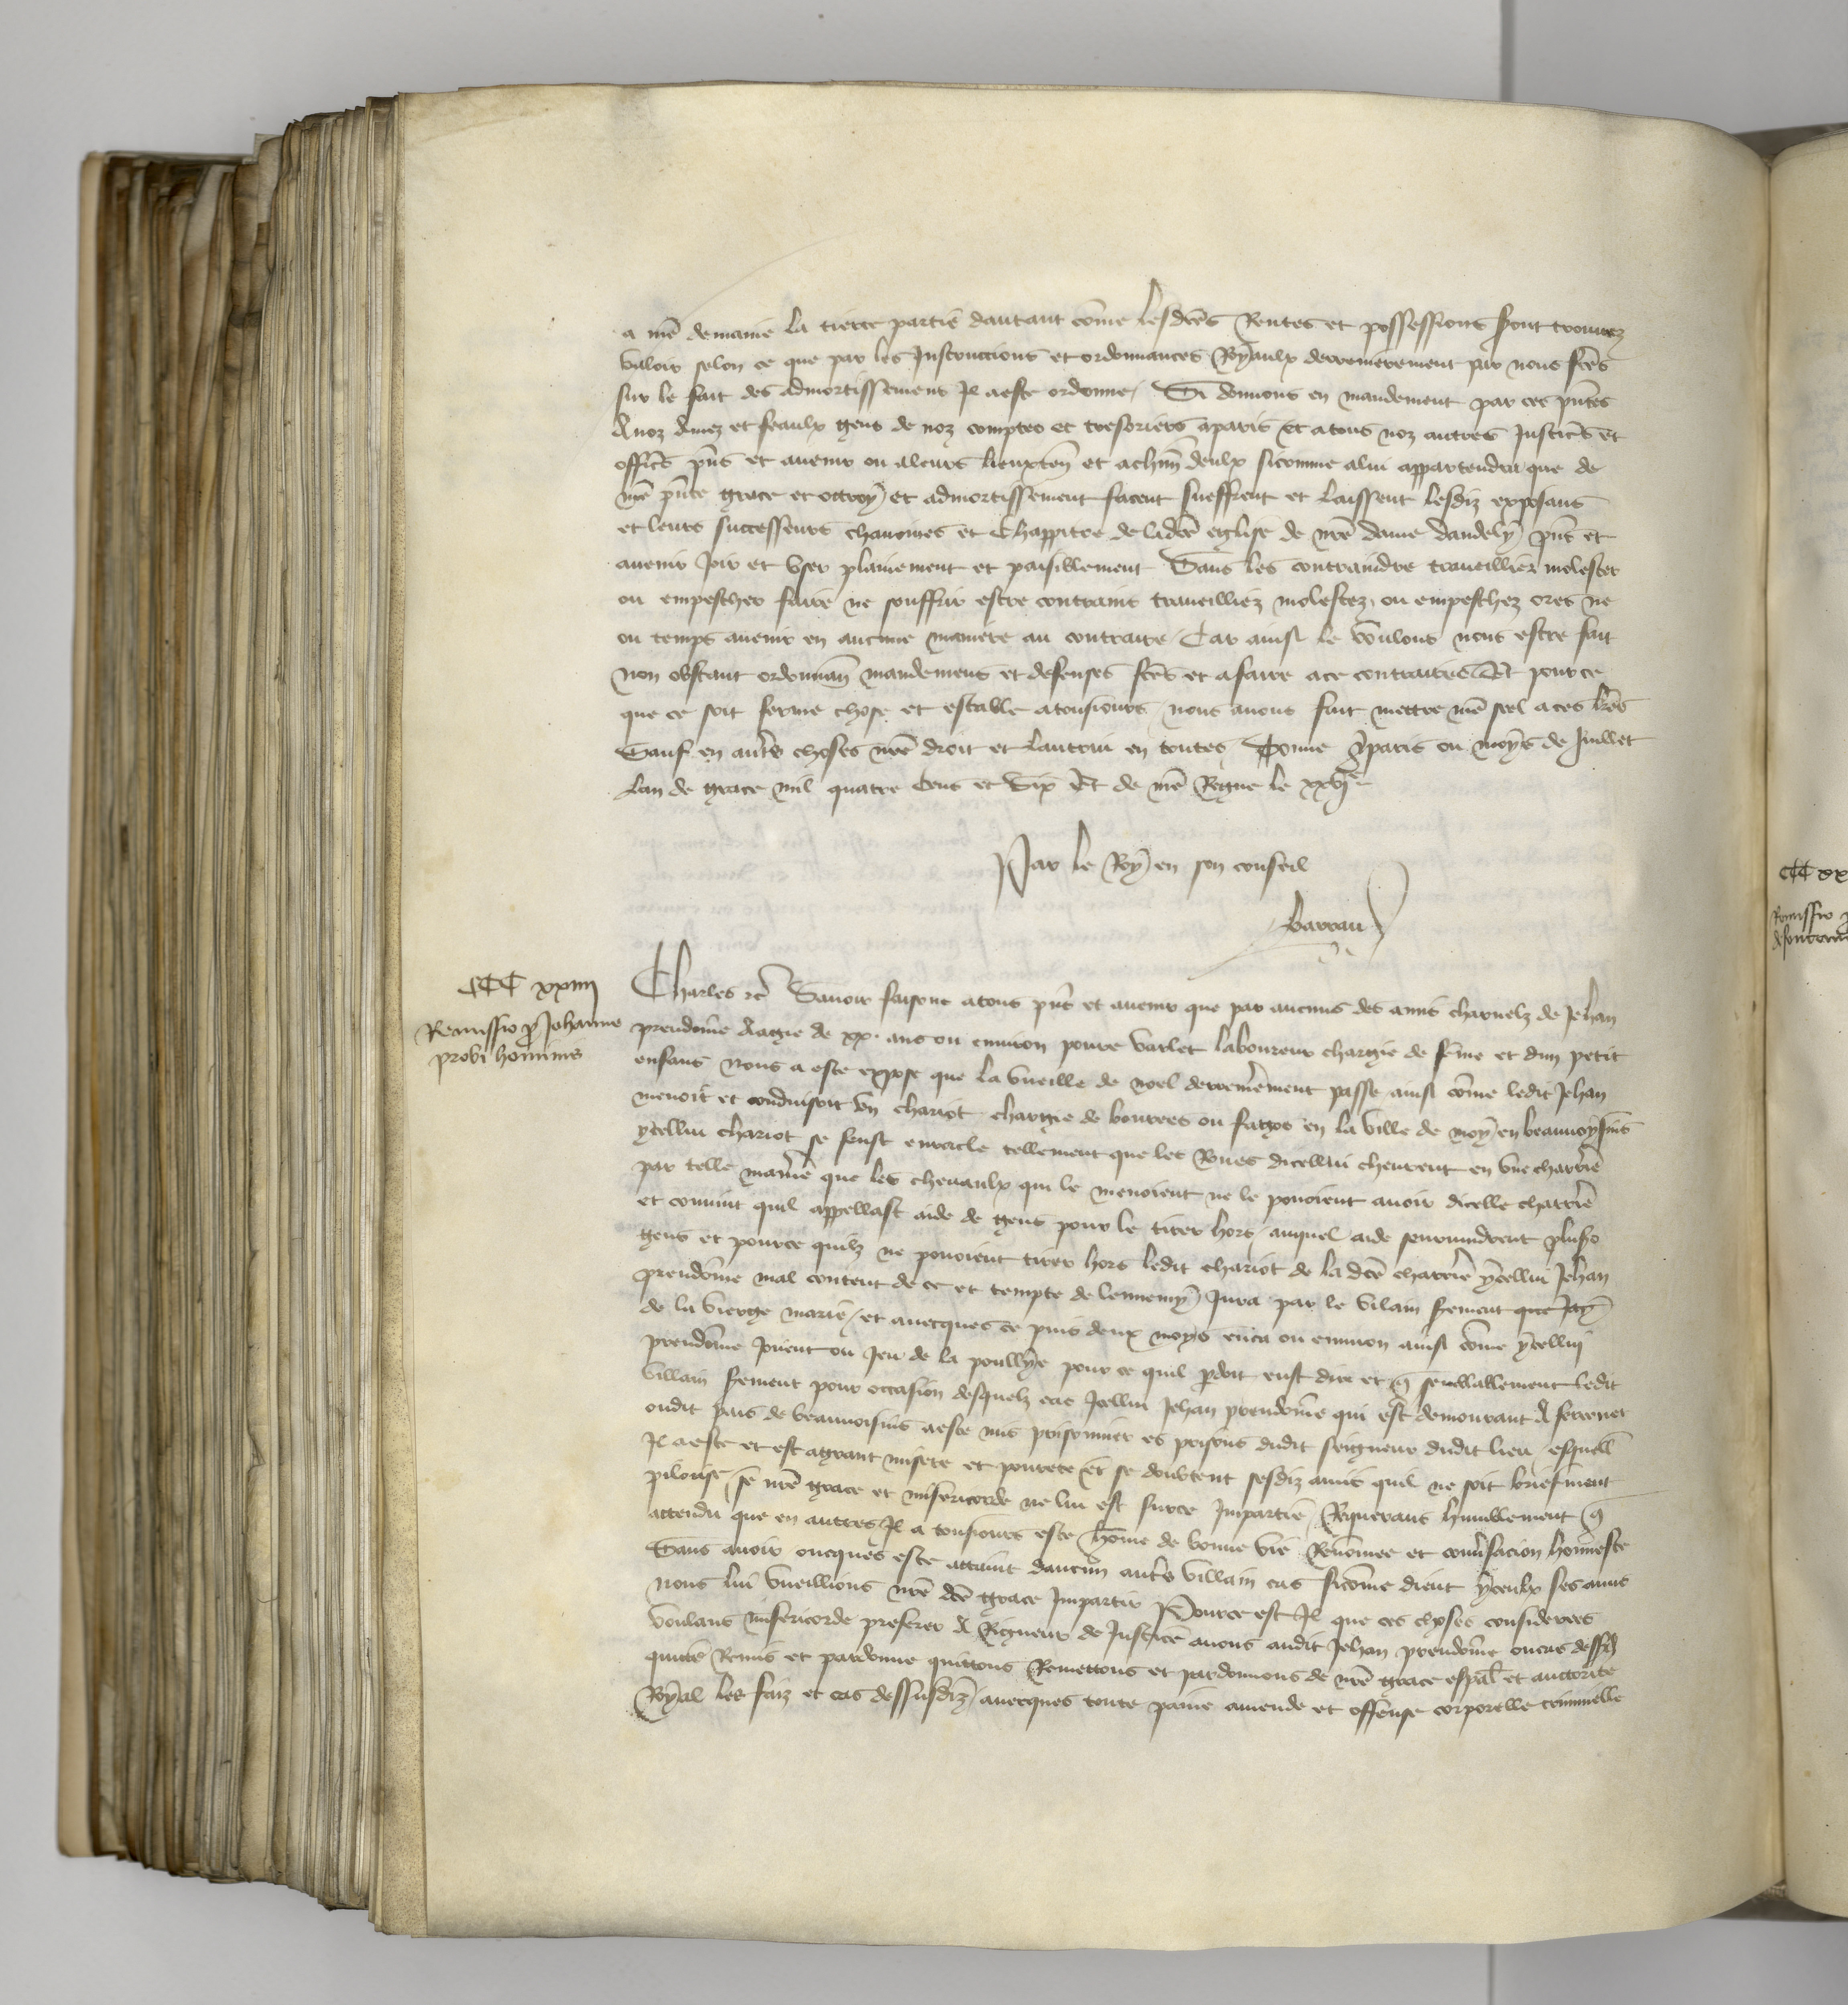 a nrē demaine la tierce partie dautant cōme lesdcēs Rentes et possessions sont trouvez
valoir selon ce que par les Instruccions et ordonnances Royaulx derrenierement par nous fcēs
sur le fait des admortissemens Il a este ordonne / Si donnons en mandement par ces pn̄tes
A noz Amez et feaulx gens de noz comptes et tresoriers aparis et atous noz autres Justic̄s et
offic̄s pn̄s et avenir ou aleurs lieuxten̄ et achm̄ deulx sicomme alui appartendra que de
nrē pn̄te grace et octroy et admortissement facent sueffrent et laissent lesdiz exposans
et leurs successeurs chanoines et Chappitre de ladcē eglise de nrē dame dandely pn̄s et
avenir Joir et user plainement et paisiblement Sans les contraindre traveillier molester
ou empescher faire ne souffrir estre contrains traveilliez molestez ou empeschez ores ne
ou temps avenir en aucune maniere au contraire / Car ainsi le voulons nous estre fait
non obstant ordonnan̄ mandemens et defenses fcēs et afaire ace contraires Et pour ce
que ce soit ferme chose et estable atousiours nous avons fait mettre nrē seel aces lr̄es
Sauf en autr̄s choses nrē droit et lautrui en toutes / Donne A paris ou moys de Juillet
Lan de grace mil quatre Cens et Six Et de nrē Regne le xxvje
Par le Roy en son conseil
barrau
CCC xxiiii
Remissio p̄ Johanne
probi hominis
Charles etc̄ Savoir faisons atous pn̄s et avenir que par aucuns des amis charnelz de Jehan
preudōme Aagie de xx. ans ou environ povre varlet laboureur chargie de fēme et dun petit
enfans Nous a este expose que la vueille de noel derrenier̄ement passe ainsi cōme ledit Jehan
menoit et conduisoit un chariot chargie de bourrees ou fagos en la ville de moy en beauvoysins
ycellui chariot se feust enracle tellement que les Roues dicellui cheurent en une charrie
par telle manier̄e que les chevaulx qui le menoient ne le povoient avoir dicelle charrier̄e
et convint quil appellast aide de gens pour le tirer hors / auquel aide seurvindrent plus̄s
gens et pource quilz ne povoient tirer hors ledit chariot de la dcē charrier̄e ycellui Jehan
preudōme mal content de ce et tempte de lennemy Jura par le vilain serment
de la vierge marie / et avecques ce puis deux moys enca ou environ ainsi cōme ycellui
preudōme Jouent ou Jeu de la poullye pour ce quil p̄doit eust dire et semblablement ledit
villain serment pour occasion desquelz cas Icellui Jehan preudōme qui est demourant A
oudit pais de beauvoisins a este mis prisonnier es prisons dudit seigneur dudit lieu / esquell̄
Il a este et est agrant misere et povrete et se doubtent sesdiz amis quil ne soit briefment
pilorise / se nrē grace et misericorde ne lui est surce Impartie / Requerans humblement q̄
attendu que en autres Il a tousiours este hōme de bonne vie Renommee et conv̄sacion honneste
Sans avoir oncques este attaint daucun autr̄e villain cas sicōme dient yceulx ses amis
nous lui vueillions nrē dcē grace Impartir Pource est Il que ces choses considerees
voulans misericorde preferer A Rigueur de Justice avons audit Jehan preudōme ou cas dessusd̄
quitte Remis et pardonne quittons Remettons et pardonnons de nrē grace espāl et auctorite
Royal les faiz et cas dessusdiz / avecques toute paine amende et offense corporelle criminelle
CCC xx
Remissio